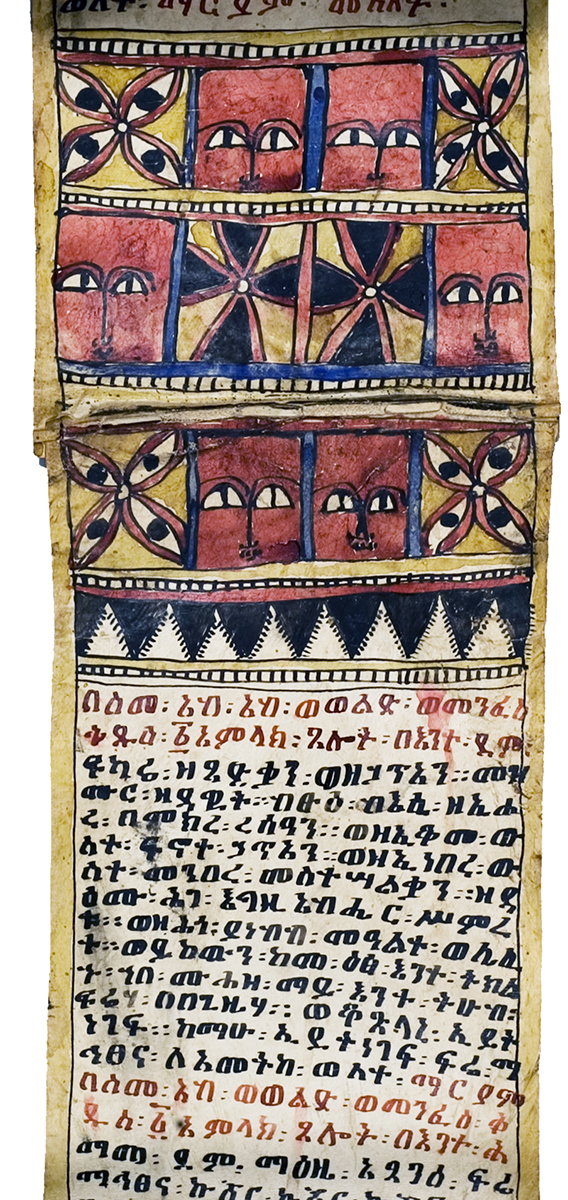 ወለተ፡ ማርያም፡
በስመ፡ አብ፡ አብ፡ ወወልድ፡ ወመንፈስ
ቅዱስ፡ ፩አምላክ፡ ጸሎት፡ በእንተ፡ ደም፡
ፍካሬ፡ ዘጻድቃን፡ ወዘኃጥአን፡፡ መዝ
ሙር፡ ዘዳዊት፡፡ ብፁዕ፡ ብእሲ፡ ዘኢሖ
ረ፡ በምክረ፡ ረሲዓን፡፡ ወዘኢቆመ፡ ው
ስተ፡ ፍኖተ፡ ኃጥአን፡፡ ወዘኢነበረ፡ ው
ስተ፡ መንበረ፡ መስተሣልቃን፡፡ ዘዳ
ዕሙ፡ ሕገ፡ እግዚአብሔር፡ ሥምረ
ቱ፡፡ ወዘሕጎ፡ ያነብብ፡ መዓልተ፡ ወሌሊ
ተ፡፡ ወይከውን፡ ከመ፡ ዕፅ፡ እንተ፡ ትክል
ት፡ ኀበ፡ ሙሐዘ፡ ማይ፡ እንተ፡ ትሁብ፡
ፍሬሃ፡ በበጊዜሃ፡፡ ወቆጽላኒ፡ ኢይት
ነገፍ፡፡ ከማሁ፡ ኢይተነገፍ፡ ፍሬ፡ ማ
ኅፀና፡ ለአመትከ፡ ወለተ፡ ማርያም
በስመ፡ አብ፡ ወወልድ፡ ወመንፈስ፡ ቅ
ዱስ፡ ፩አምላክ፡ ጸሎት፡ በእንተ፡ ሕ
ማመ፡ ደም፡ ማዕዜ፡ አጻንዕ፡ ፍሬ፡
ማኅፀና፡